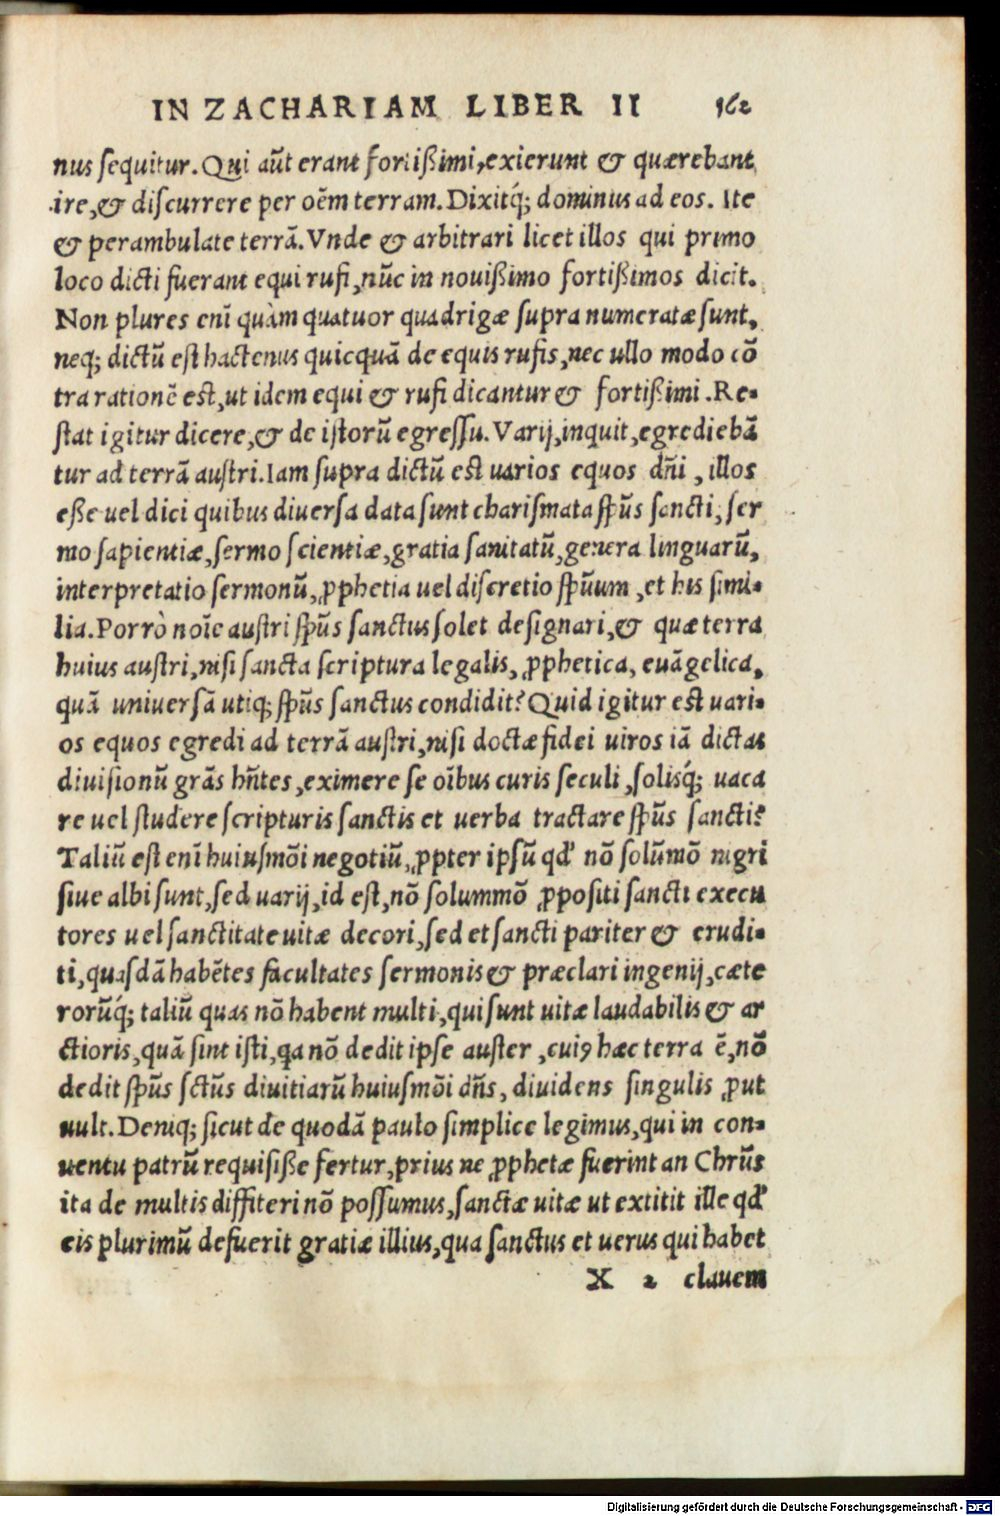 IN ZACHARIAM LIBER II 162
nus sequitur. Qui aũt erant fortißimi, exierunt & quærebant
ire, & discurrere per oẽm terram. Dixitq́; dominus ad eos. Ite
& perambulate terrã. Vnde & arbitrari licet illos qui primo
loco dicti fuerant equi rufi, nũc in nouißimo fortißimos dicit.
Non plures enĩ quàm quatuor quadrigæ supra numeratæ sunt,
neq; dictũ est hactenus quicquã de equis rufis, nec ullo modo cõ
tra rationẽ est, ut idem equi & rufi dicantur & fortißimi. Re-
stat igitur dicere, & de istorũ egressu. Varij, inquit, egrediebã
tur ad terrã austri. Iam supra dictũ est uarios equos dñi, illos
eße uel dici quibus diuersa data sunt charismata sp̃us sancti, ser
mo sapientiæ, sermo scientiæ, gratia sanitatũ, genera linguarũ,
interpretatio sermonũ, ꝓphetia uel discretio sp̃uum, et his simi-
lia. Porrò noĩe austri sp̃us sanctus solet designari, & quæ terra
huius austri, nisi sancta scriptura legalis, ꝓphetica, euãgelica,
quã uniuersã utiq; sp̃us sanctus condidit? Quid igitur est uari-
os equos egredi ad terrã austri, nisi doctæ fidei uiros iã dictas
diuisionũ grãs hñtes, eximere se oĩbus curis seculi, solisq́; uaca
re uel studere scripturis sanctis et uerba tractare sp̃us sancti?
Taliũ est enĩ huiusmõi negotiũ, ꝓpter ipsũ qđ nõ solũmõ nigri
siue albi sunt, sed uarij, id est, nõ solummõ ꝓpositi sancti execu
tores uel sanctitate uitæ decori, sed et sancti pariter & erudi-
ti, quasdã habẽtes facultates sermonis & præclari ingenij, cæte
rorũq́; taliũ quas nõ habent multi, qui sunt uitæ laudabilis & ar
ctioris, quã sint isti, qa nõ dedit ipse auster, cuiꝰ hæc terra ẽ, nõ
dedit sp̃us sctũs diuitiarũ huiusmõi dñs, diuidens singulis ꝓut
uult. Deniq; sicut de quodã paulo simplice legimus, qui in con-
uentu patrũ requisiße fertur, prius ne ꝓphetæ fuerint an Chrũs
ita de multis diffiteri nõ possumus, sanctæ uitæ ut extitit ille qđ
eis plurimũ defuerit gratiæ illius, qua sanctus et uerus qui habet
X 2 clauem
Digitalisierung gefördert durch die Deutsche Forschungsgemeinschaft - DFG